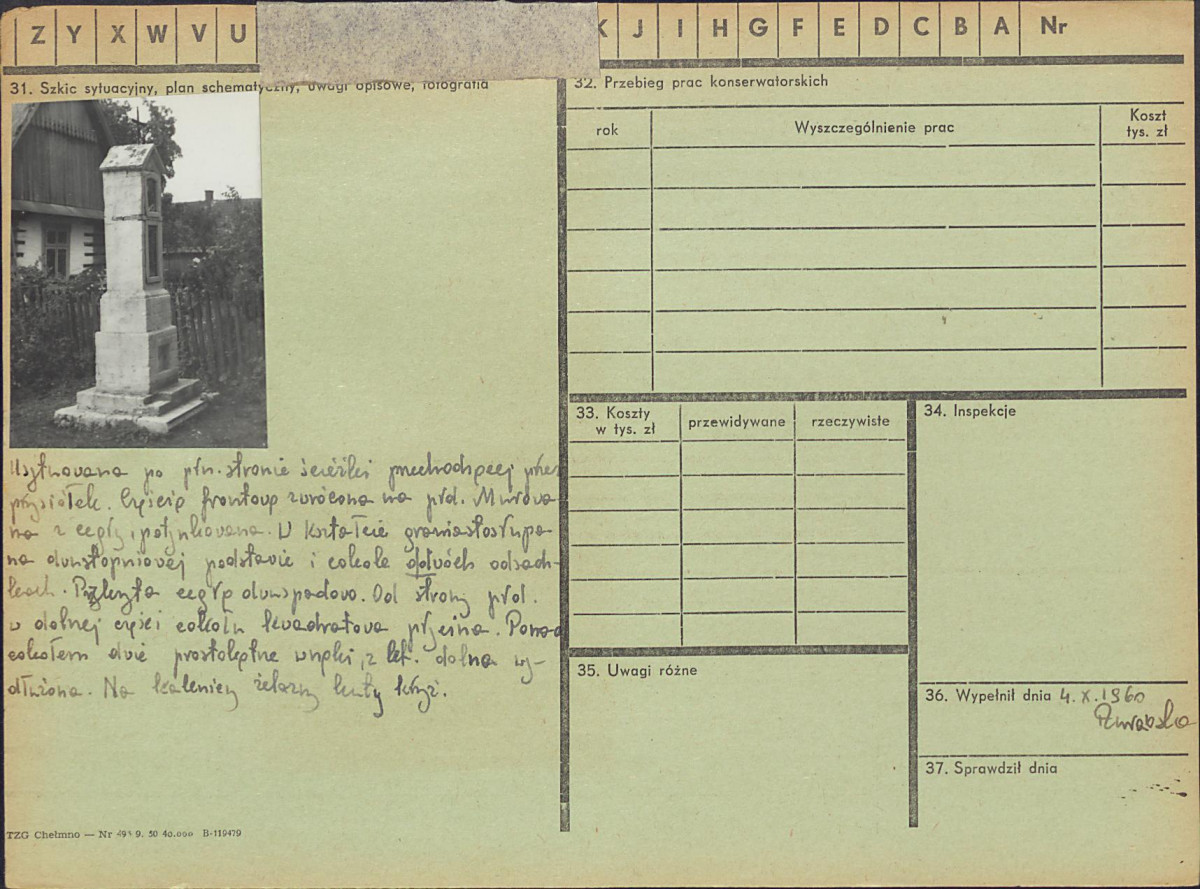 Z Y X W V U K J I H G F E D C B A Nr
31. Szkic sytuacyjny, plan schematyczny, uwagi opisowe, fotografia
32. Przebieg prac konserwatorskich
rok
Wyszczególnienie prac
Koszt
tys. zł
33. Koszty
w tys. zł
przewidywane
rzeczywiste
34. Inspekcje
Usytuowana po płn. stronie ścieżki przechodzącej przez
przysiółek. Częścią frontową zwrócona na płd. Murowa-
na z cegły, potynkowana. W kształcie graniastosłupa
na dwustopniowej podstawie i cokole o dwóch odsad-
kach. Przykryta cegłą dwuspadowo. Od strony płd.
w dolnej części cokołu kwadratowa płycina. Ponad
cokołem dwie prostokątne wnęki, z kt. dolna wy-
dłużona. Na kalenicy żelazny kuty krzyż.
35. Uwagi różne
36. Wypełnił dnia 4.X.1960
37. Sprawdził dnia
TZG Chełmno — Nr 9. 50 40.000 B-119479